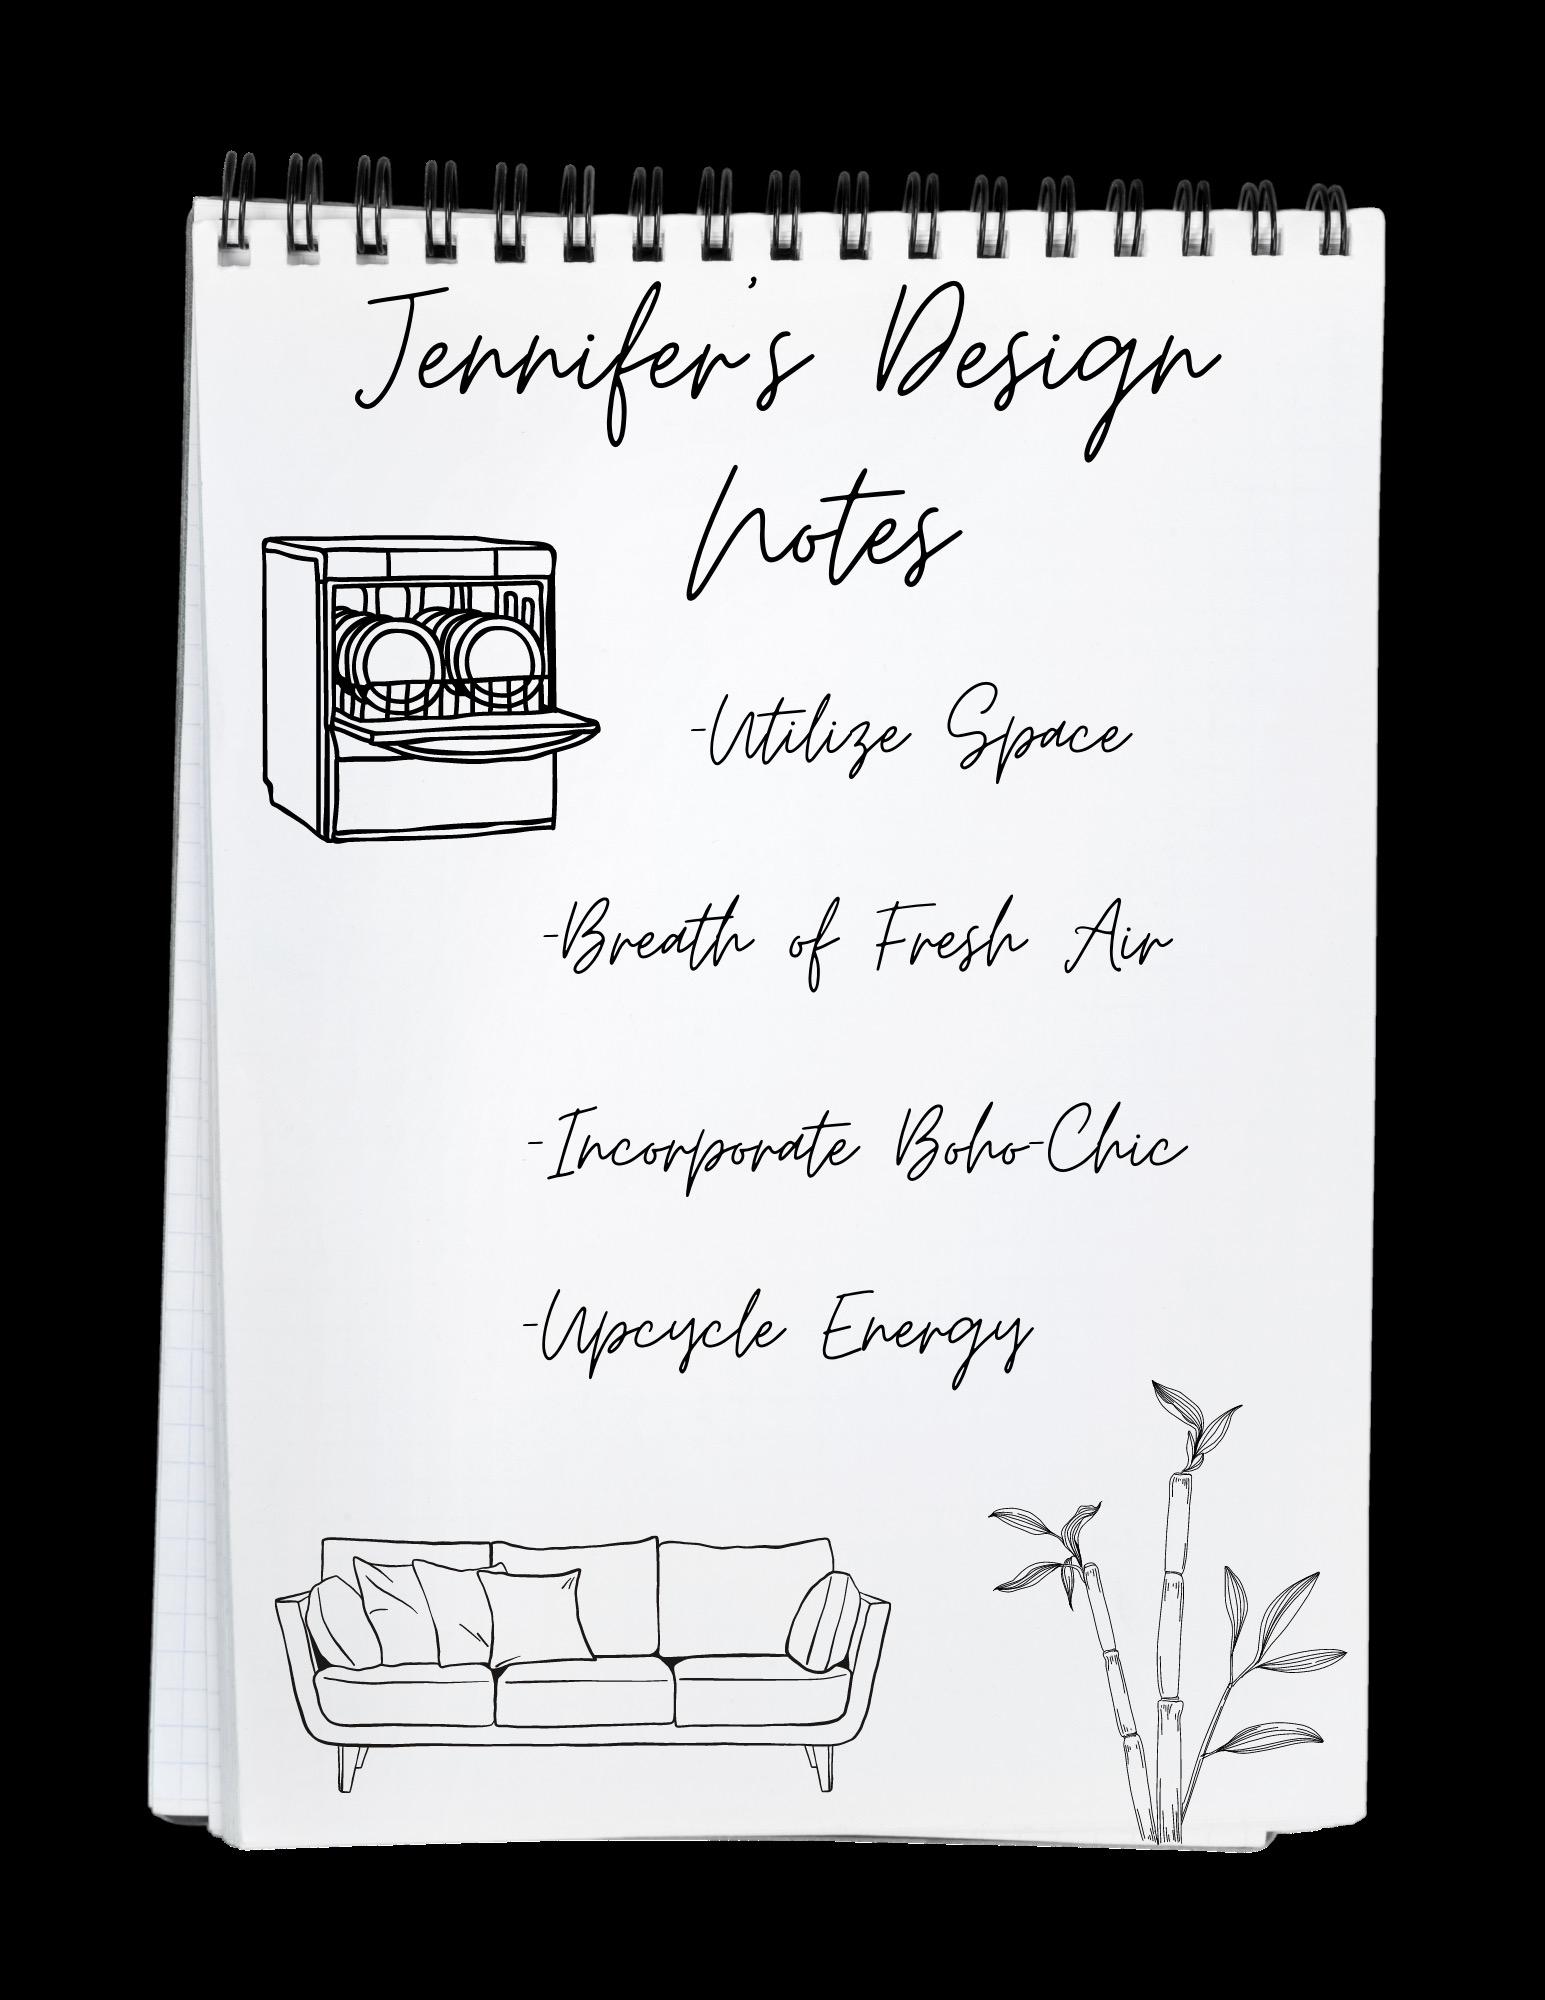 Jennifer's Design
Notes
-Utilize Space
-Breath of Fresh Air
-Incorporate Boho-Chic
-Upcycle Energy